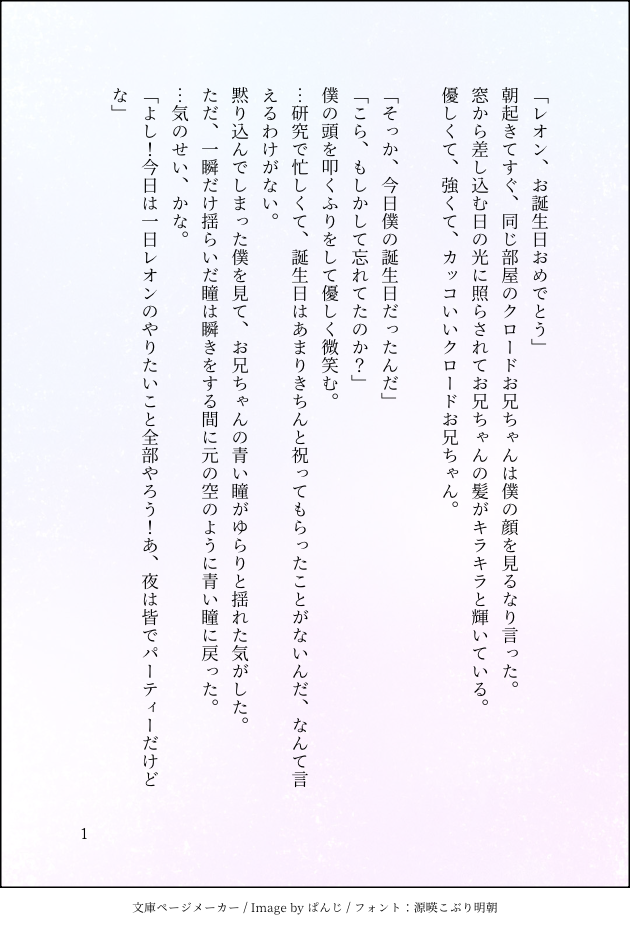 「レオン、お誕生日おめでとう」
朝起きてすぐ、同じ部屋のクロードお兄ちゃんは僕の顔を見るなり言った。
窓から差し込む日の光に照らされてお兄ちゃんの髪がキラキラと輝いている。
優しくて、強くて、カッコいいクロードお兄ちゃん。
「そっか、今日僕の誕生日だったんだ」
「こら、もしかして忘れてたのか？」
僕の頭を叩くふりをして優しく微笑む。
…研究で忙しくて、誕生日はあまりきちんと祝ってもらったことがないんだ、なんて言
えるわけがない。
黙り込んでしまった僕を見て、お兄ちゃんの青い瞳がゆらりと揺れた気がした。
ただ、一瞬だけ揺らいだ瞳は瞬きをする間に元の空のように青い瞳に戻った。
…気のせい、かな。
「よし！今日は一日レオンのやりたいこと全部やろう！あ、夜は皆でパーティーだけど
な」
1
文庫ページメーカー / Image by ぱんじ / フォント：源暎こぶり明朝